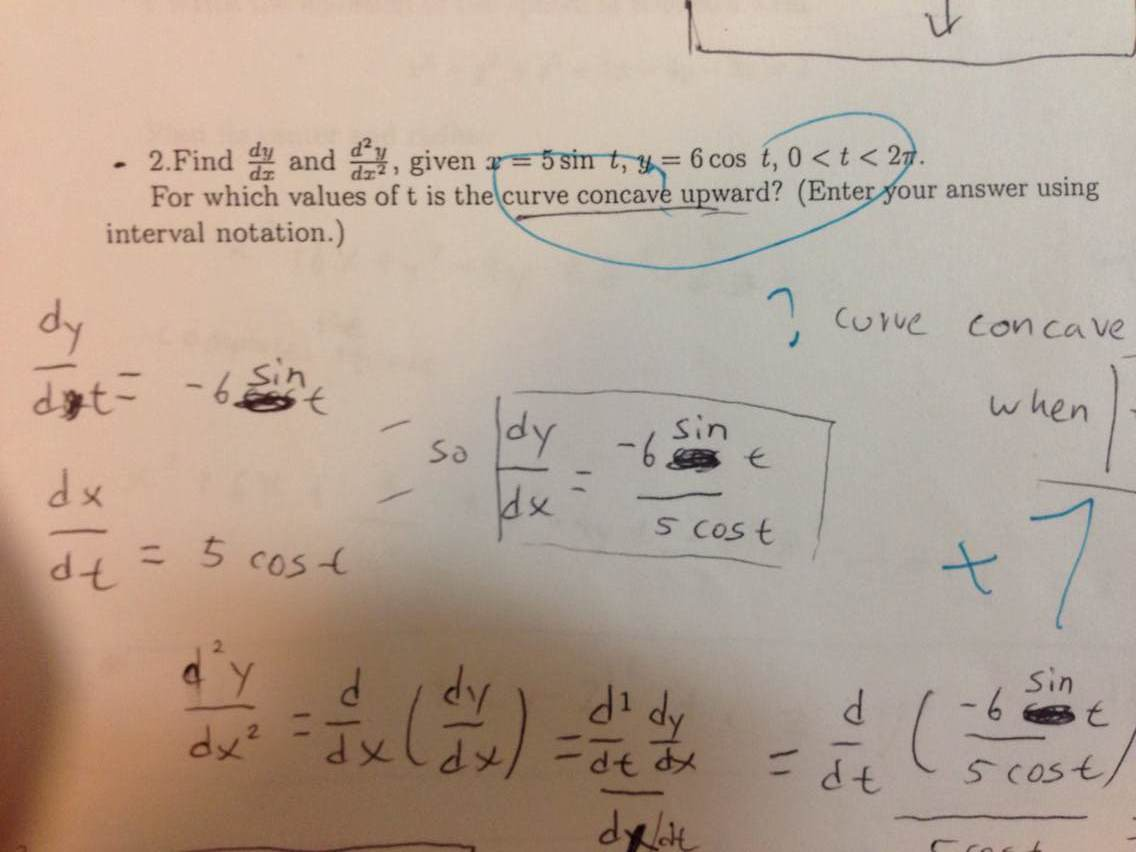 2.Find dy/dx and d²y/dx², given x = 5 sin t, y = 6 cos t, 0 < t < 2π.
For which values of t is the curve concave upward? (Enter your answer using
interval notation.)
? curve concave
when
dy/dt = -6 sin t
so dy/dx = -6 sin t / 5 cos t
dx/dt = 5 cos t
+7
d²y/dx² = d/dx (dy/dx) = d¹/dt dy/dx / dx/dt = d/dt (-6 sin t / 5 cos t) / 5 cos t